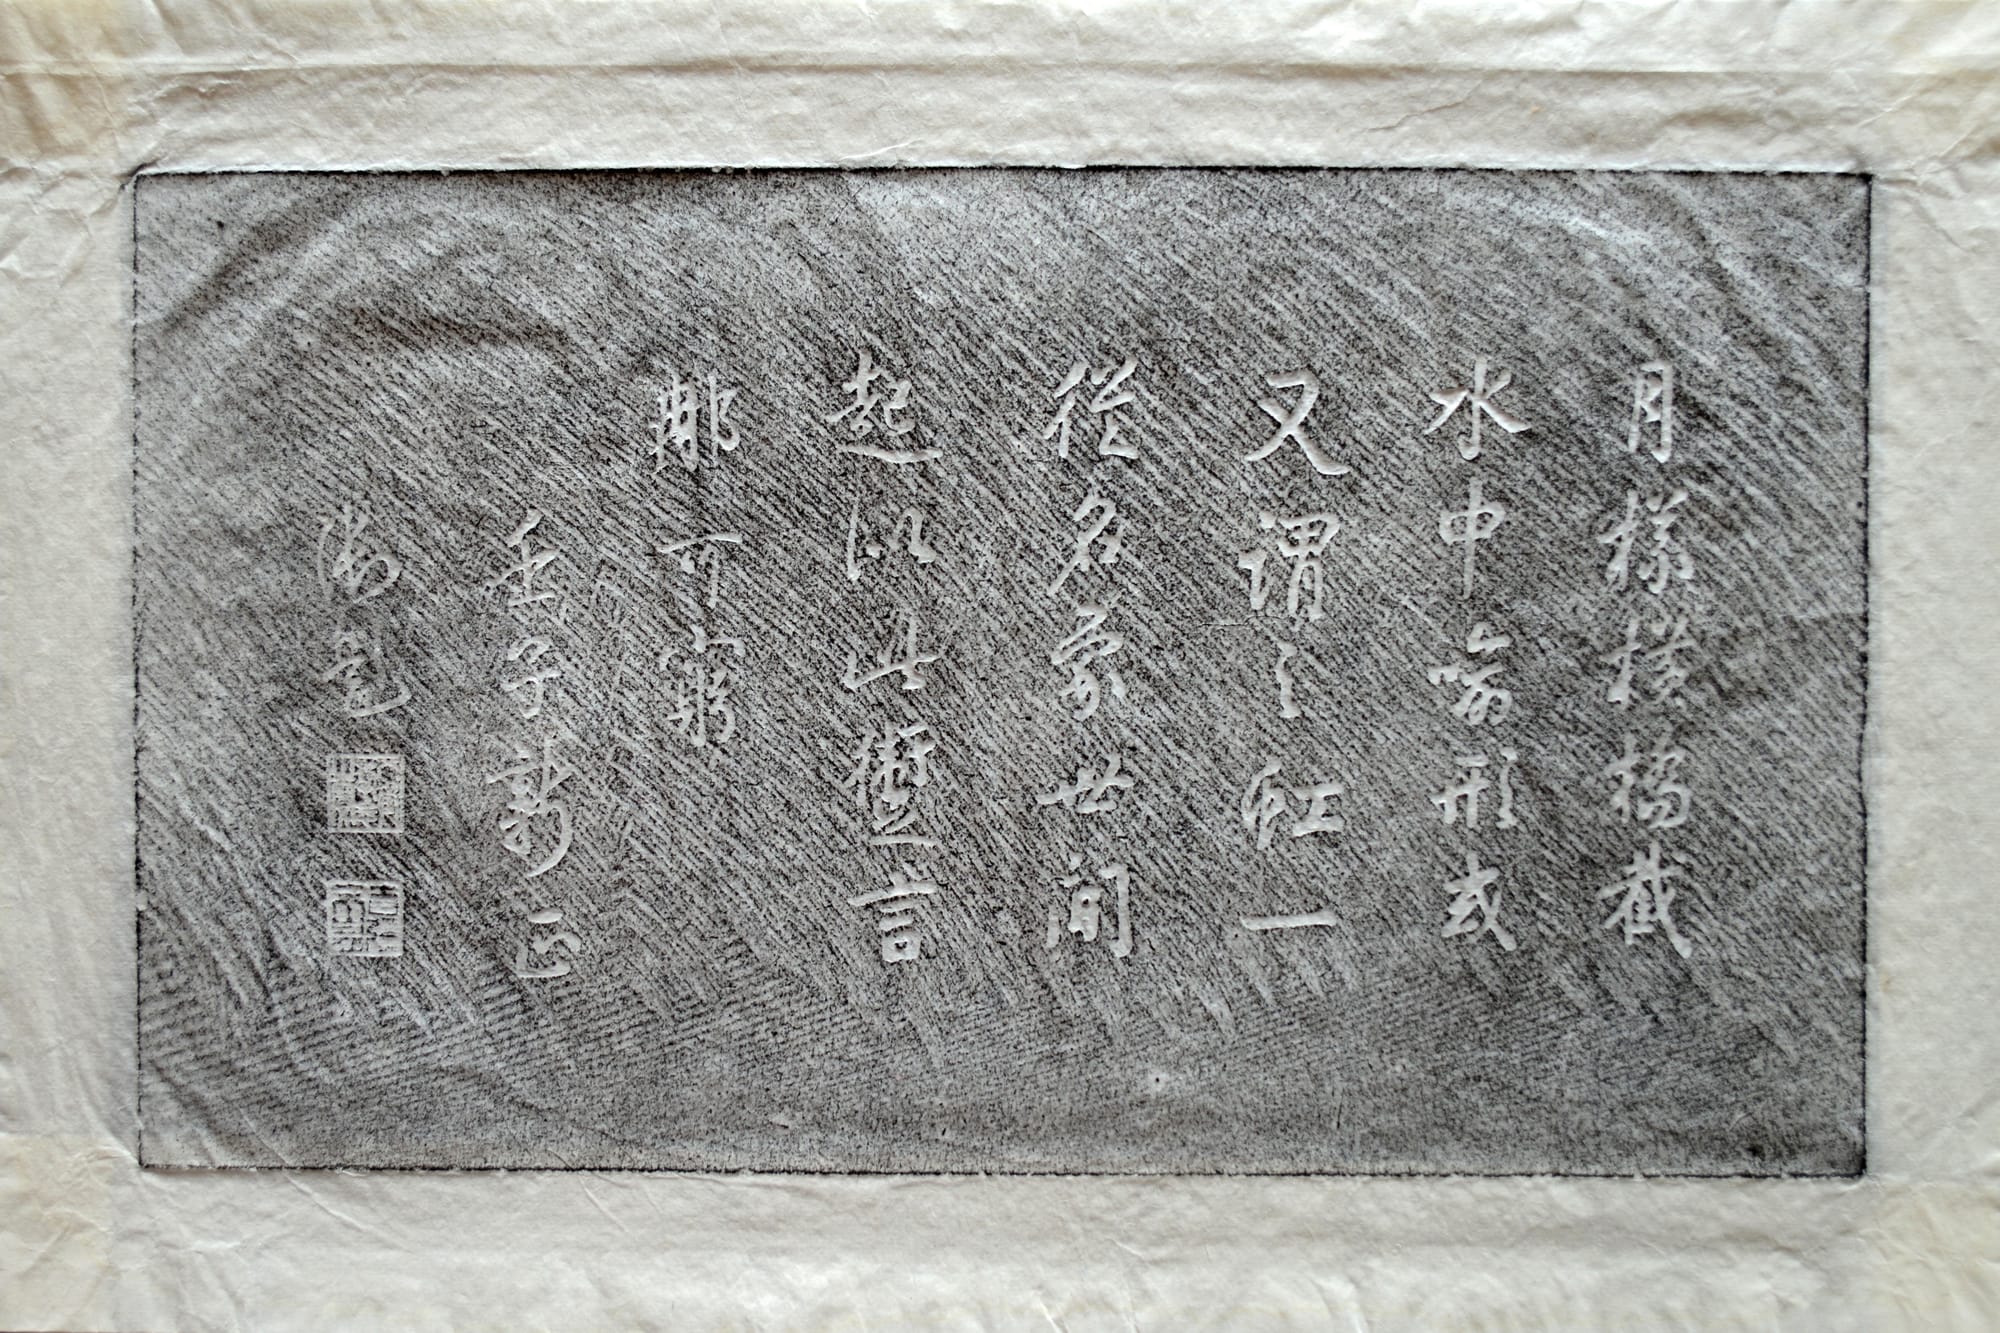 月樣橋截
水中喻形或
又謂之虹一
從名象世間
起以此言
那可窮
壬子新正
御筆